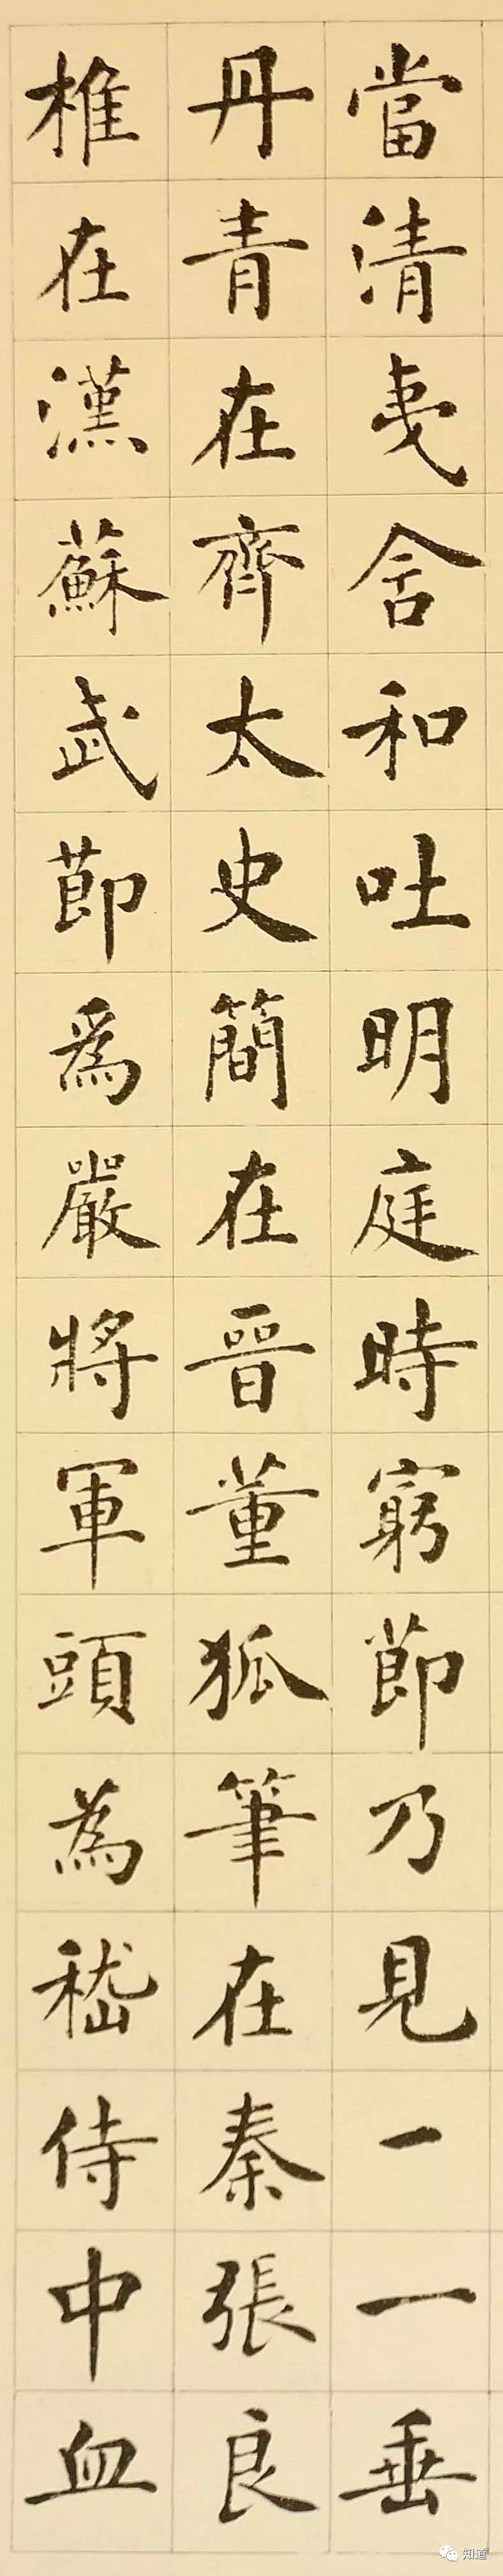 當清夷含和吐明庭時窮節乃見一一垂
丹青在齊太史簡在晉董狐筆在秦張良
椎在漢蘇武節爲嚴將軍頭為嵇侍中血
知道